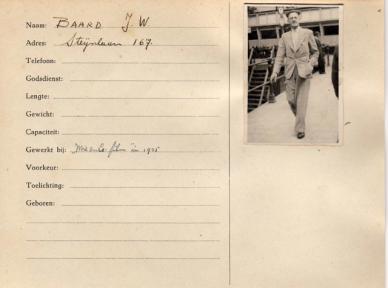 Naam: BAARD J. W.
Adres: Steijnlaan 167.
Telefoon:
Godsdienst:
Lengte:
Gewicht:
Capaciteit:
Gewerkt bij: film in
Voorkeur:
Toelichting:
Geboren: